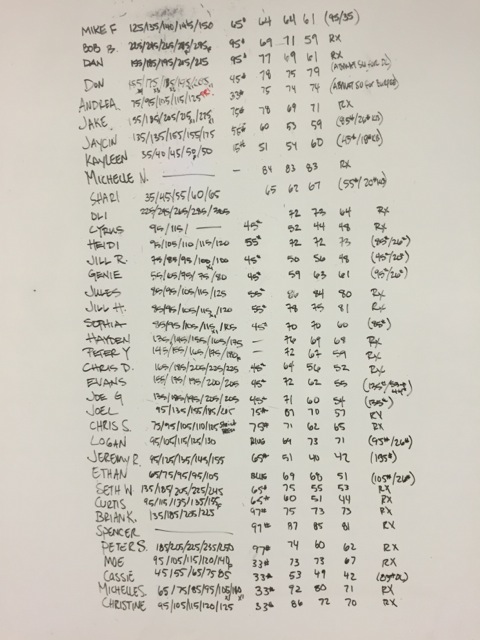 MIKE F 125/135/140/145/150 65# 64 64 61 (95/35)
BOB B. 95# 69 71 59 RX
DAN 155/185/195/205/225 95# 77 69 61 RX
DON 45# 78 75 79
ANDREA 75/95/105/115/125 33# 75 74 74
JAKE 75# 78 69 71 RX
JAYCIN 135/135/155/155/175 55# 60 53 59
KAYLEEN 35/40/45/50/50 15# 51 54 60
MICHELLE N. — — 84 83 83 RX
SHARI 35/45/55/60/65 65 62 67
OLI 72 73 64 RX
CYRUS 95/115/ — 45# 52 44 48 RX
HEIDI 95/105/110/115/120 55# 72 72 73 (85#/26#)
JILL R. 75/85/95/100/100 45# 50 56 48
GENIE 55/65/75/75/80 45# 59 63 61
JULES 85/95/105/115/125 55# 86 84 80 RX
JILL H. 55# 78 75 81 RX
SOPHIA 45# 70 70 60 (85#)
HAYDEN 135/145/155/165/175 — 76 69 68 RX
PETER Y — 72 67 59 RX
CHRIS D. 165/185/205/225/225 45# 64 56 52 RX
EVANS 155/175/195/200/205 45# 72 62 55
JOE G 45# 71 60 54 (135#)
JOEL 95/135/155/185/205 75# 87 70 57 RX
CHRIS S. 75/95/105/110/125 75# 71 62 65 RX
LOGAN 95/105/115/125/130 BLUE 64 73 71 (95#/26#)
JEREMY R. 95/125/135/145/155 65# 51 40 42 (195#)
ETHAN 65/75/95/95/105 BLUE 69 68 51 (105#/26#)
SETH W 135/185/205/225/245 65# 75 55 53 RX
CURTIS 95/115/135/135/155 65# 60 51 44 RX
BRIAN K. 135/185/205/225 97# 75 73 73 RX
SPENCER — 97# 87 85 81 RX
PETER S. 185/205/225/235/250 97# 74 60 62 RX
MOE 95/105/115/120/140 33# 73 73 67 RX
CASSIE 45/55/65/75/85 33# 53 49 42
MICHELLE S. 65/75/85/95/105/110 33# 92 80 71 RX
CHRISTINE 95/105/115/120/125 33# 86 72 70 RX